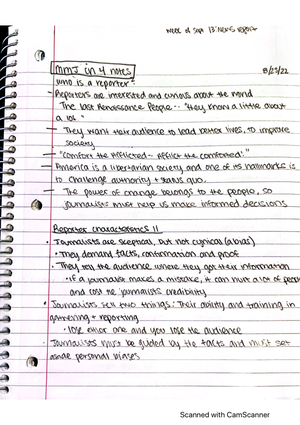 week of sept 13: news report
MMJ in 4 notes
8/23/22
who is a reporter?
- Reporters are interested and curious about the world
The last Renaissance People... "they know a little about
a lot"
- They want their audience to lead better lives, to improve
society
- "comfort the afflicted - afflict the comforted."
- America is a libertarian society and one of its hallmarks is
to challenge authority + status quo.
- The power of change belongs to the people, so
journalists must help us make informed decisions
Reporter characteristics 11
• Journalists are sceptical, but not cynical (abras)
• They demand facts, confirmation and proof
• They tell the audience where they got their information
• if a journalist makes a mistake, it can hurt a lot of people
and cost the journalists credibility
• Journalists sell two things: Their ability and training in
gathering + reporting
• lose either one and you lose the audience
• Journalists must be guided by the facts and must set
aside personal biases
Scanned with CamScanner